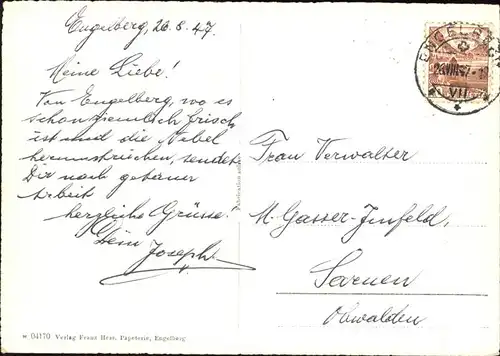 Engelberg, 26.8.47.
Meine Liebe!
Von Engelberg, wo es
schon ziemlich frisch
ist und die Nebel
herumstreichen, sendet
Dir nach getaner
Arbeit
herzliche Grüsse!
Dein Joseph
Frau Verwalter
M. Gasser-Imfeld,
Sarnen
Obwalden
ENGELBERG
VII
04170 Verlag Franz Hess, Papeterie, Engelberg